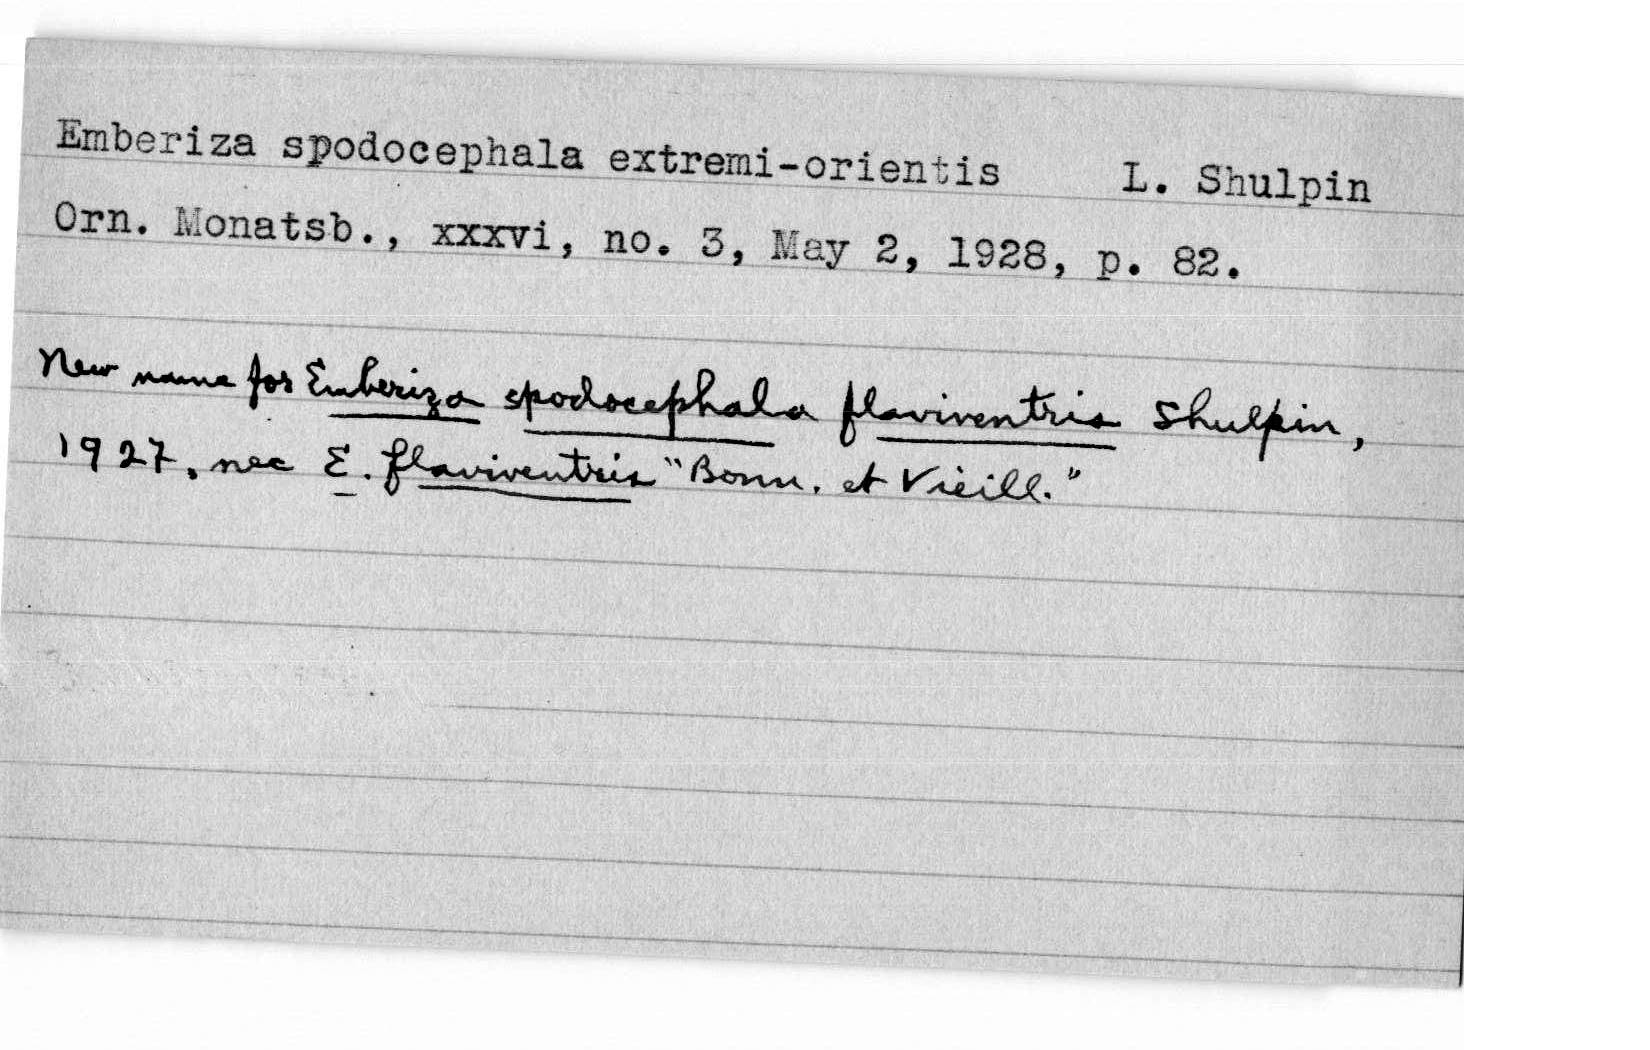 Emberiza spodocephala extremi-orientis L. Shulpin
Orn. Monatsb., xxxvi, no. 3, May 2, 1928, p. 82.
New name for Emberiza spodocephala flaviventris Shulpin,
1927, nec E. flaviventris "Bonn. et Vieill."